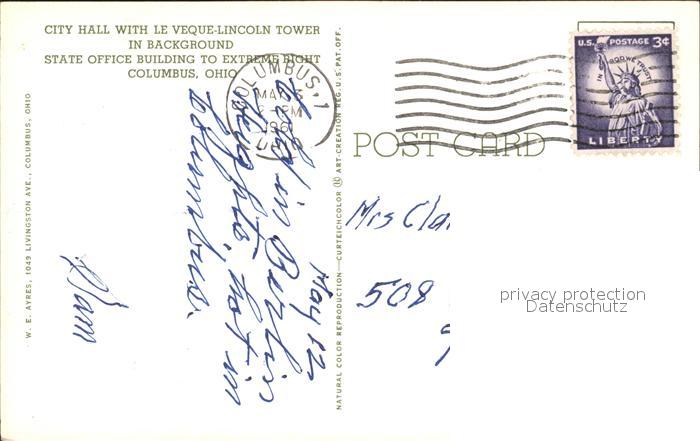 CITY HALL WITH LE VEQUE-LINCOLN TOWER
IN BACKGROUND
STATE OFFICE BUILDING TO EXTREME RIGHT
COLUMBUS, OHIO
COLUMBUS, 1
PM
196
U.S. POSTAGE 3¢
IN GOD WE TRUST
LIBERTY
POST CARD
W. E. AYRES, 1049 LIVINGSTON AVE., COLUMBUS, OHIO
NATURAL COLOR REPRODUCTION—CURTEICHCOLOR ® ART-CREATION REG. U.S. PAT. OFF.
May 12
in Berlin
hot in
Columbus.
Mrs Cla
508
privacy protection
Datenschutz